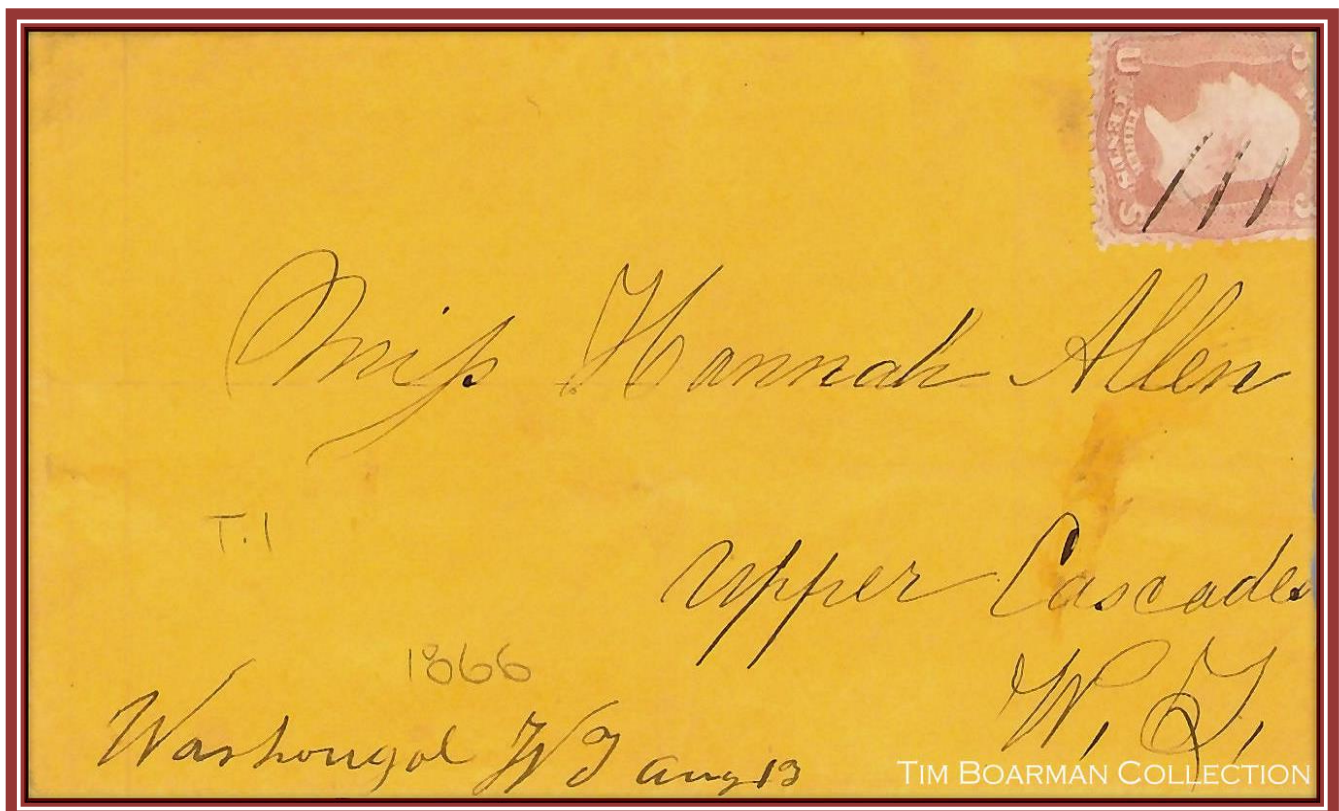 Miss Hannah Allen
T.1
Upper Cascades
W. T.
1866
Washougal WT Aug 13
U S
THREE CENTS
TIM BOARMAN COLLECTION